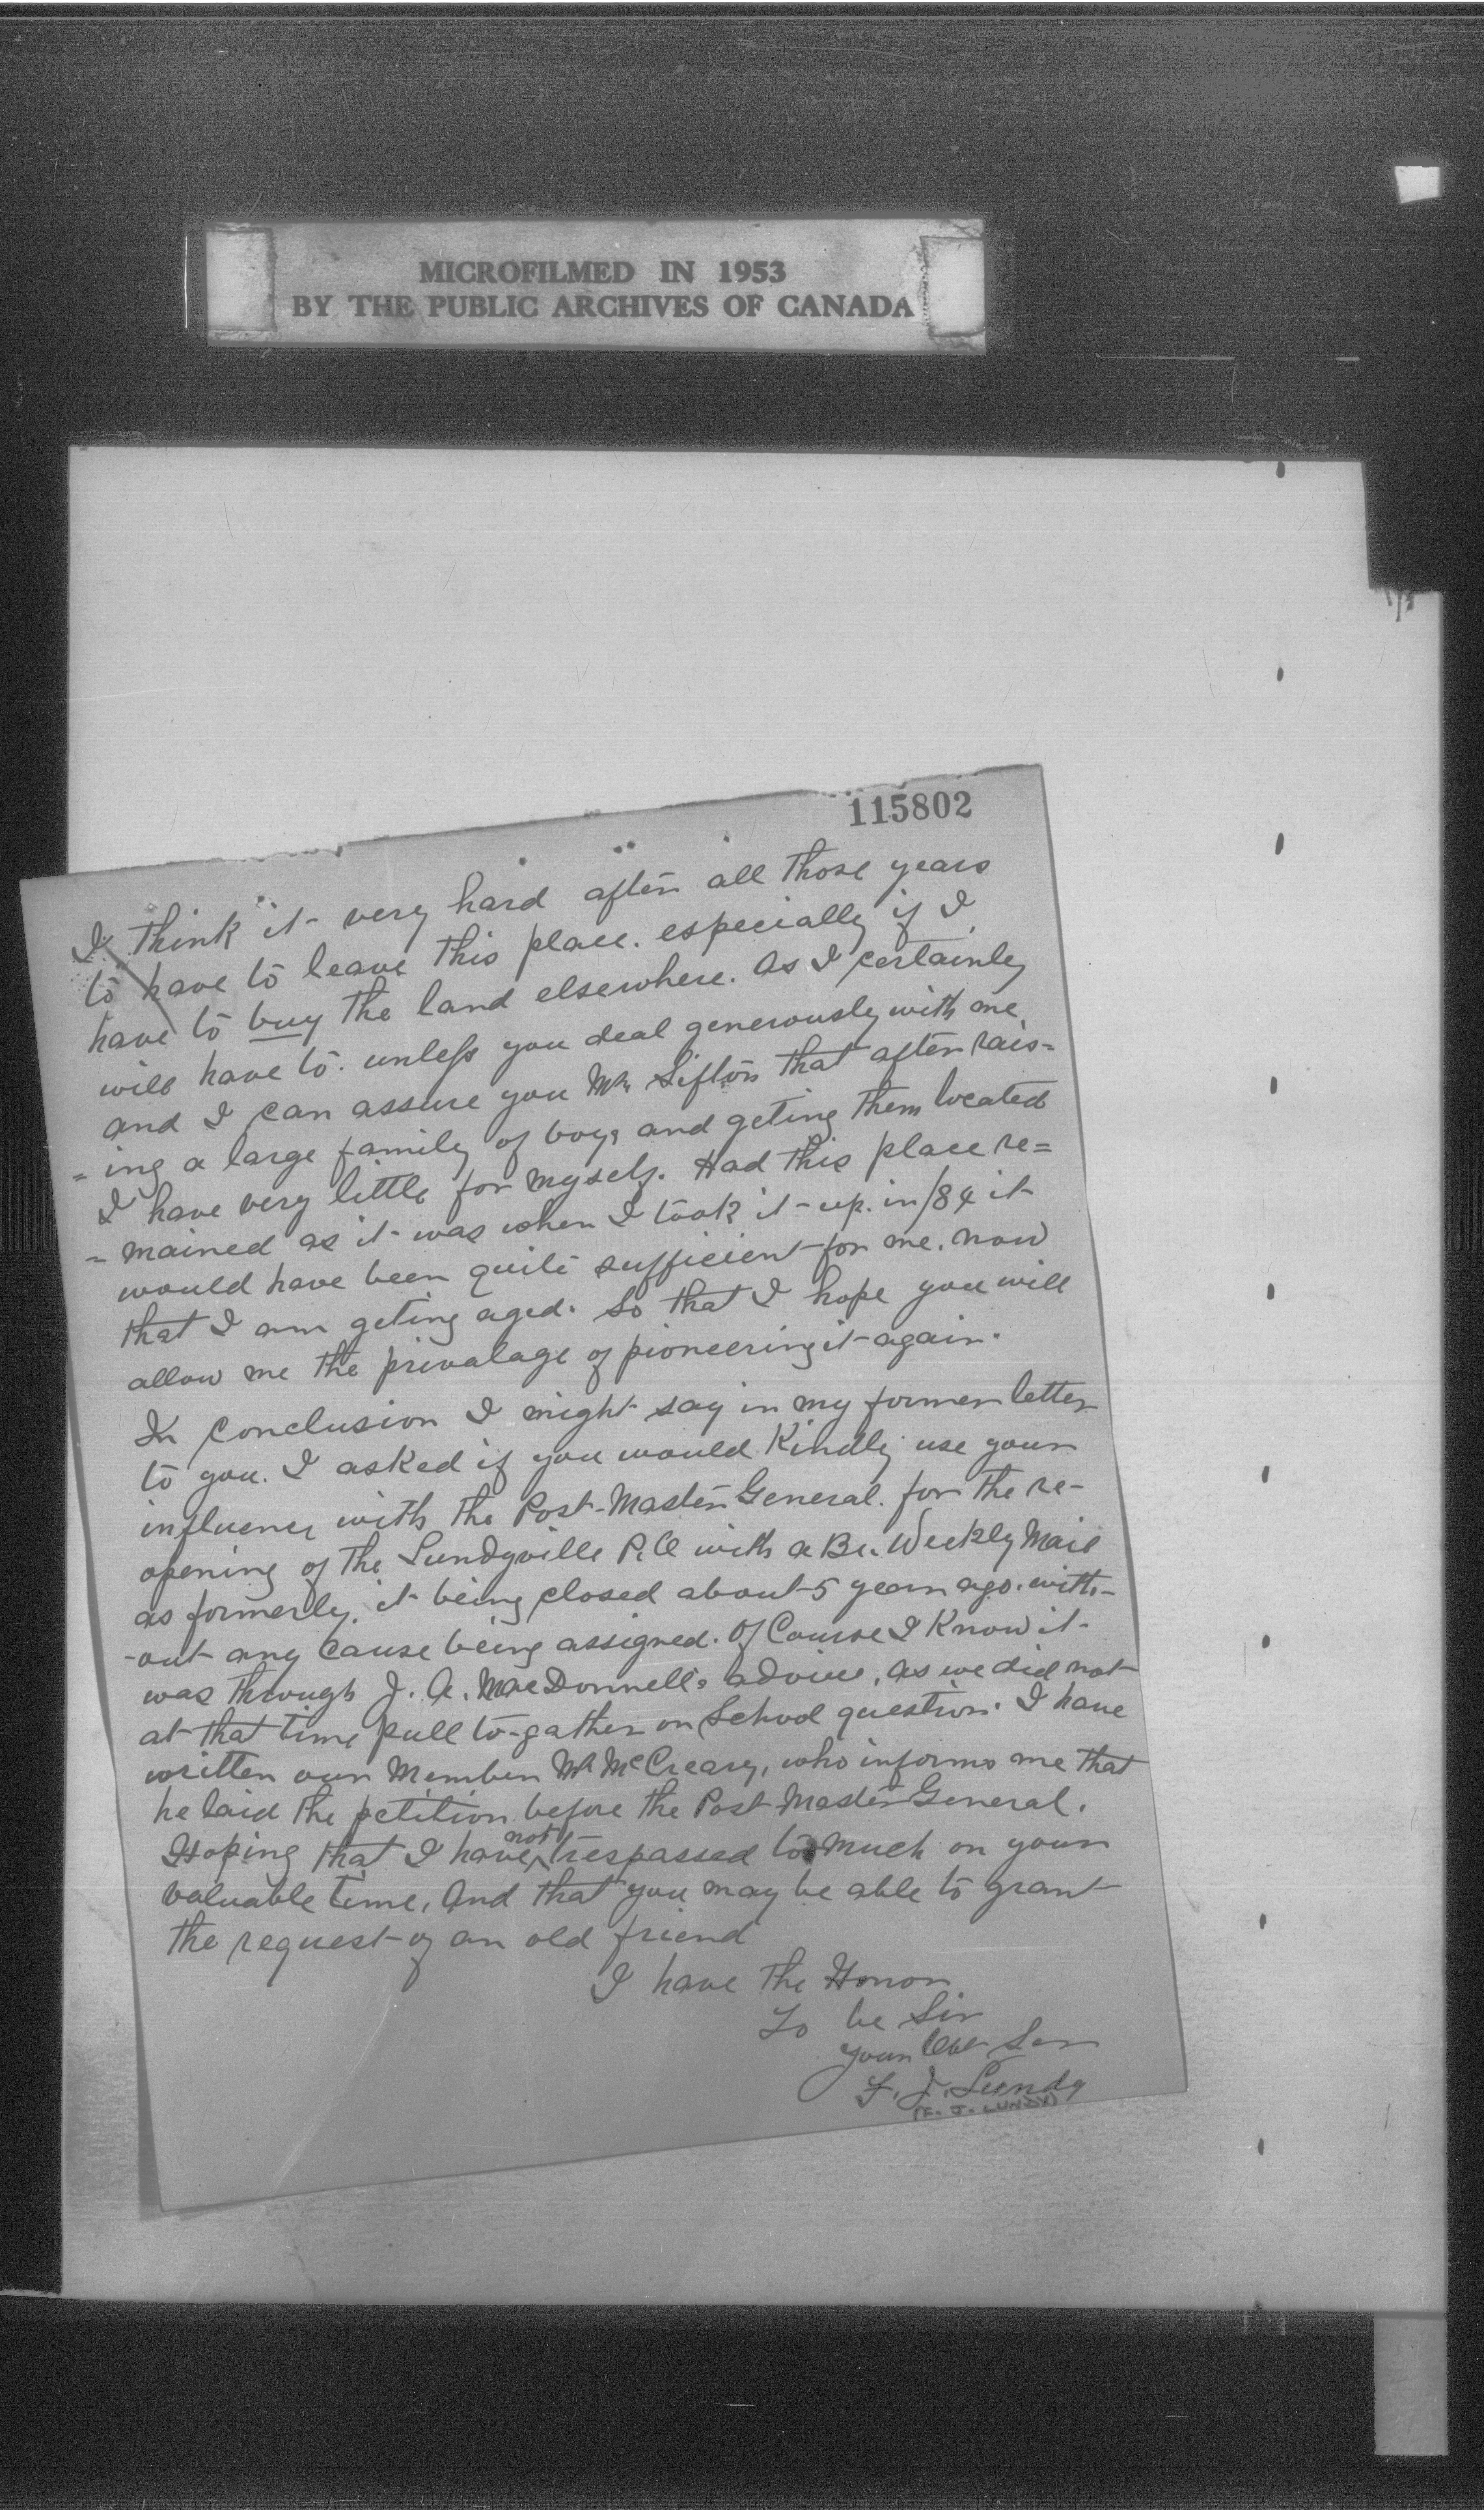 MICROFILMED IN 1953
BY THE PUBLIC ARCHIVES OF CANADA
115802
I think it very hard after all those years
to have to leave this place. especially if I
have to buy the land elsewhere. As I certainly
will have to. unless you deal generously with me,
and I can assure you Mr. Sifton that after rais=
=ing a large family of boys and geting them located
I have very little for myself. Had this place re=
=mained as it was when I took it up. in /84 it
would have been quite sufficient for me. now
that I am geting aged. So that I hope you will
allow me the privalage of pioneering it again.
In Conclusion I might say in my former letter
to you. I asked if you would Kindly use your
influence with the Post-Master General. for the re-
opening of the Lundyville P.O with a Bi-Weekly Mail
as formerly. it being closed about 5 years ago. with-
-out any Cause being assigned. Of Course I Know it
was through J. A. MacDonnell's advice, as we did not
at that time pull to-gather on School question. I have
written our Member Mr McCreary, who informs me that
he laid the petition before the Post-Master General.
Hoping that I have not trespassed to much on your
valuable time, And that you may be able to grant
the request of an old friend
I have the Honor
To be Sir
your Obt Ser
F. J. Lundy
(F. J. LUNDY)